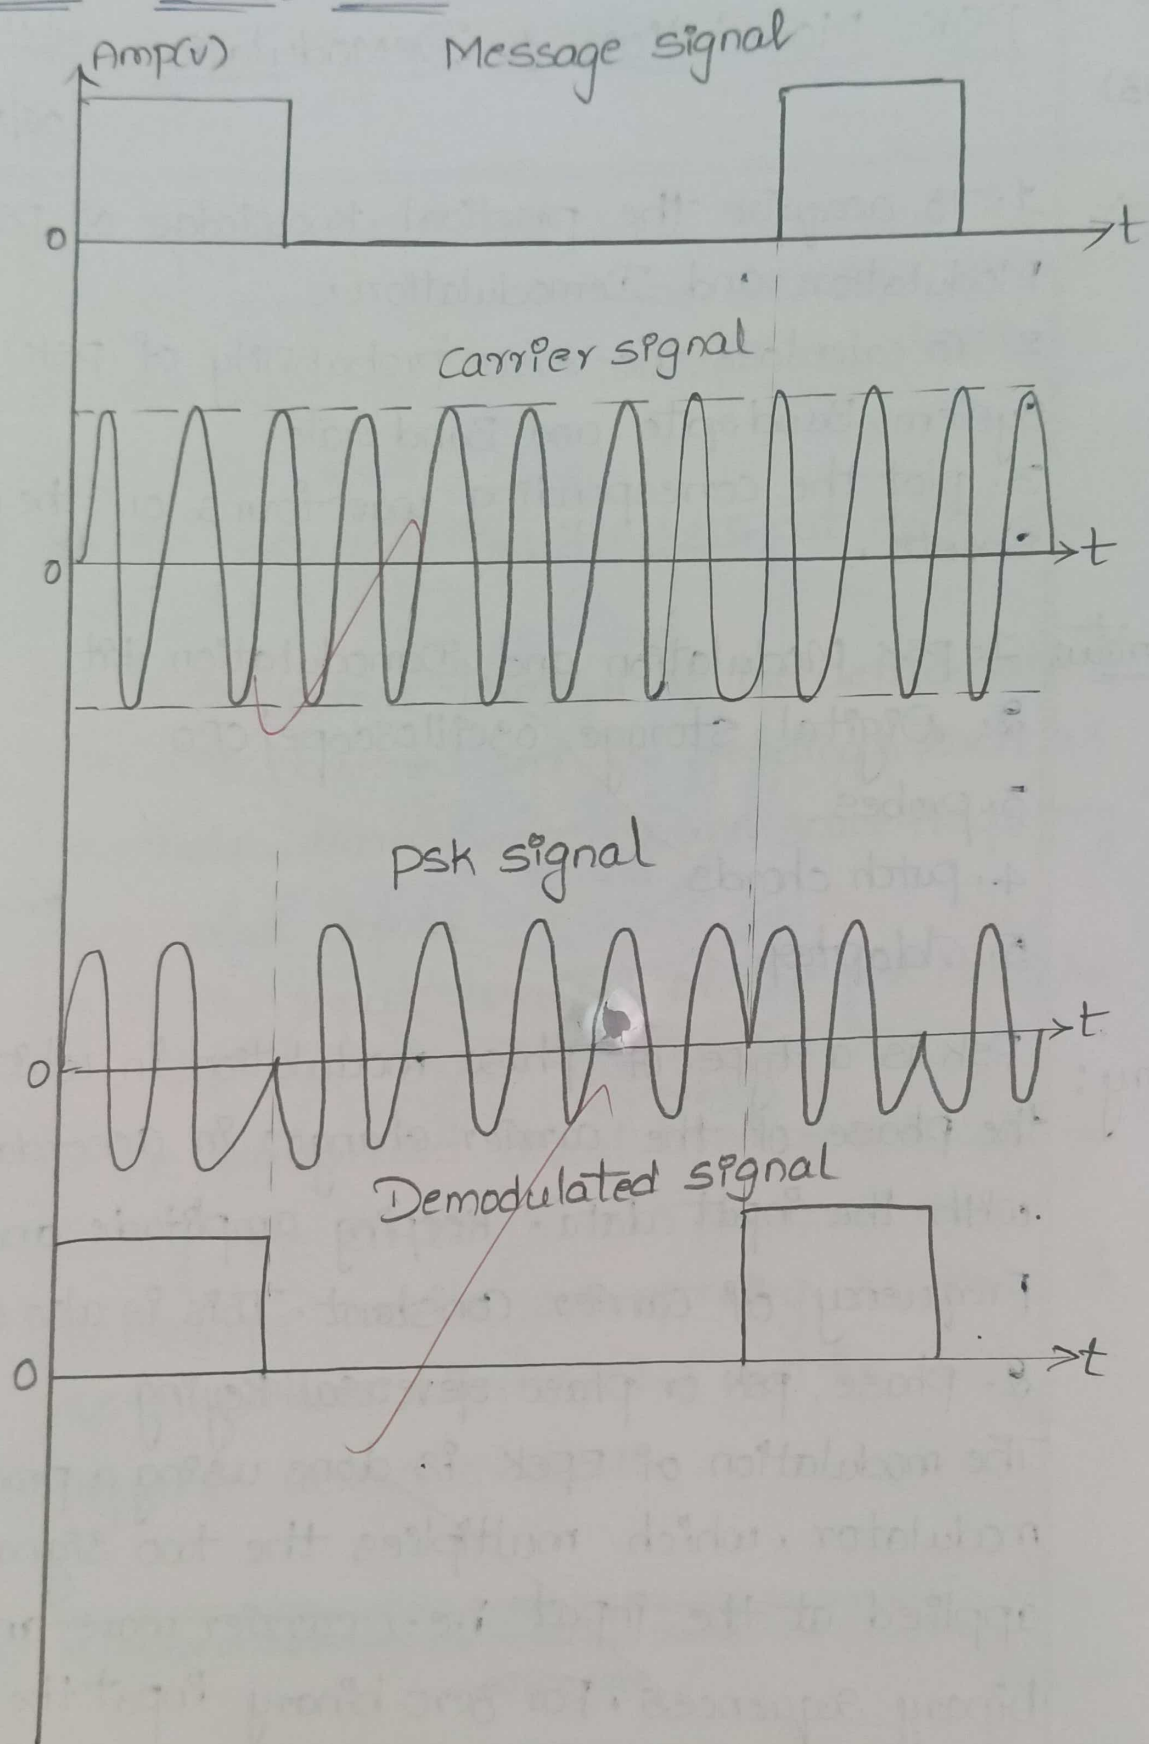 Amp(v)
Message signal
0
t
Carrier signal
0
t
Psk signal
0
t
Demodulated signal
0
t